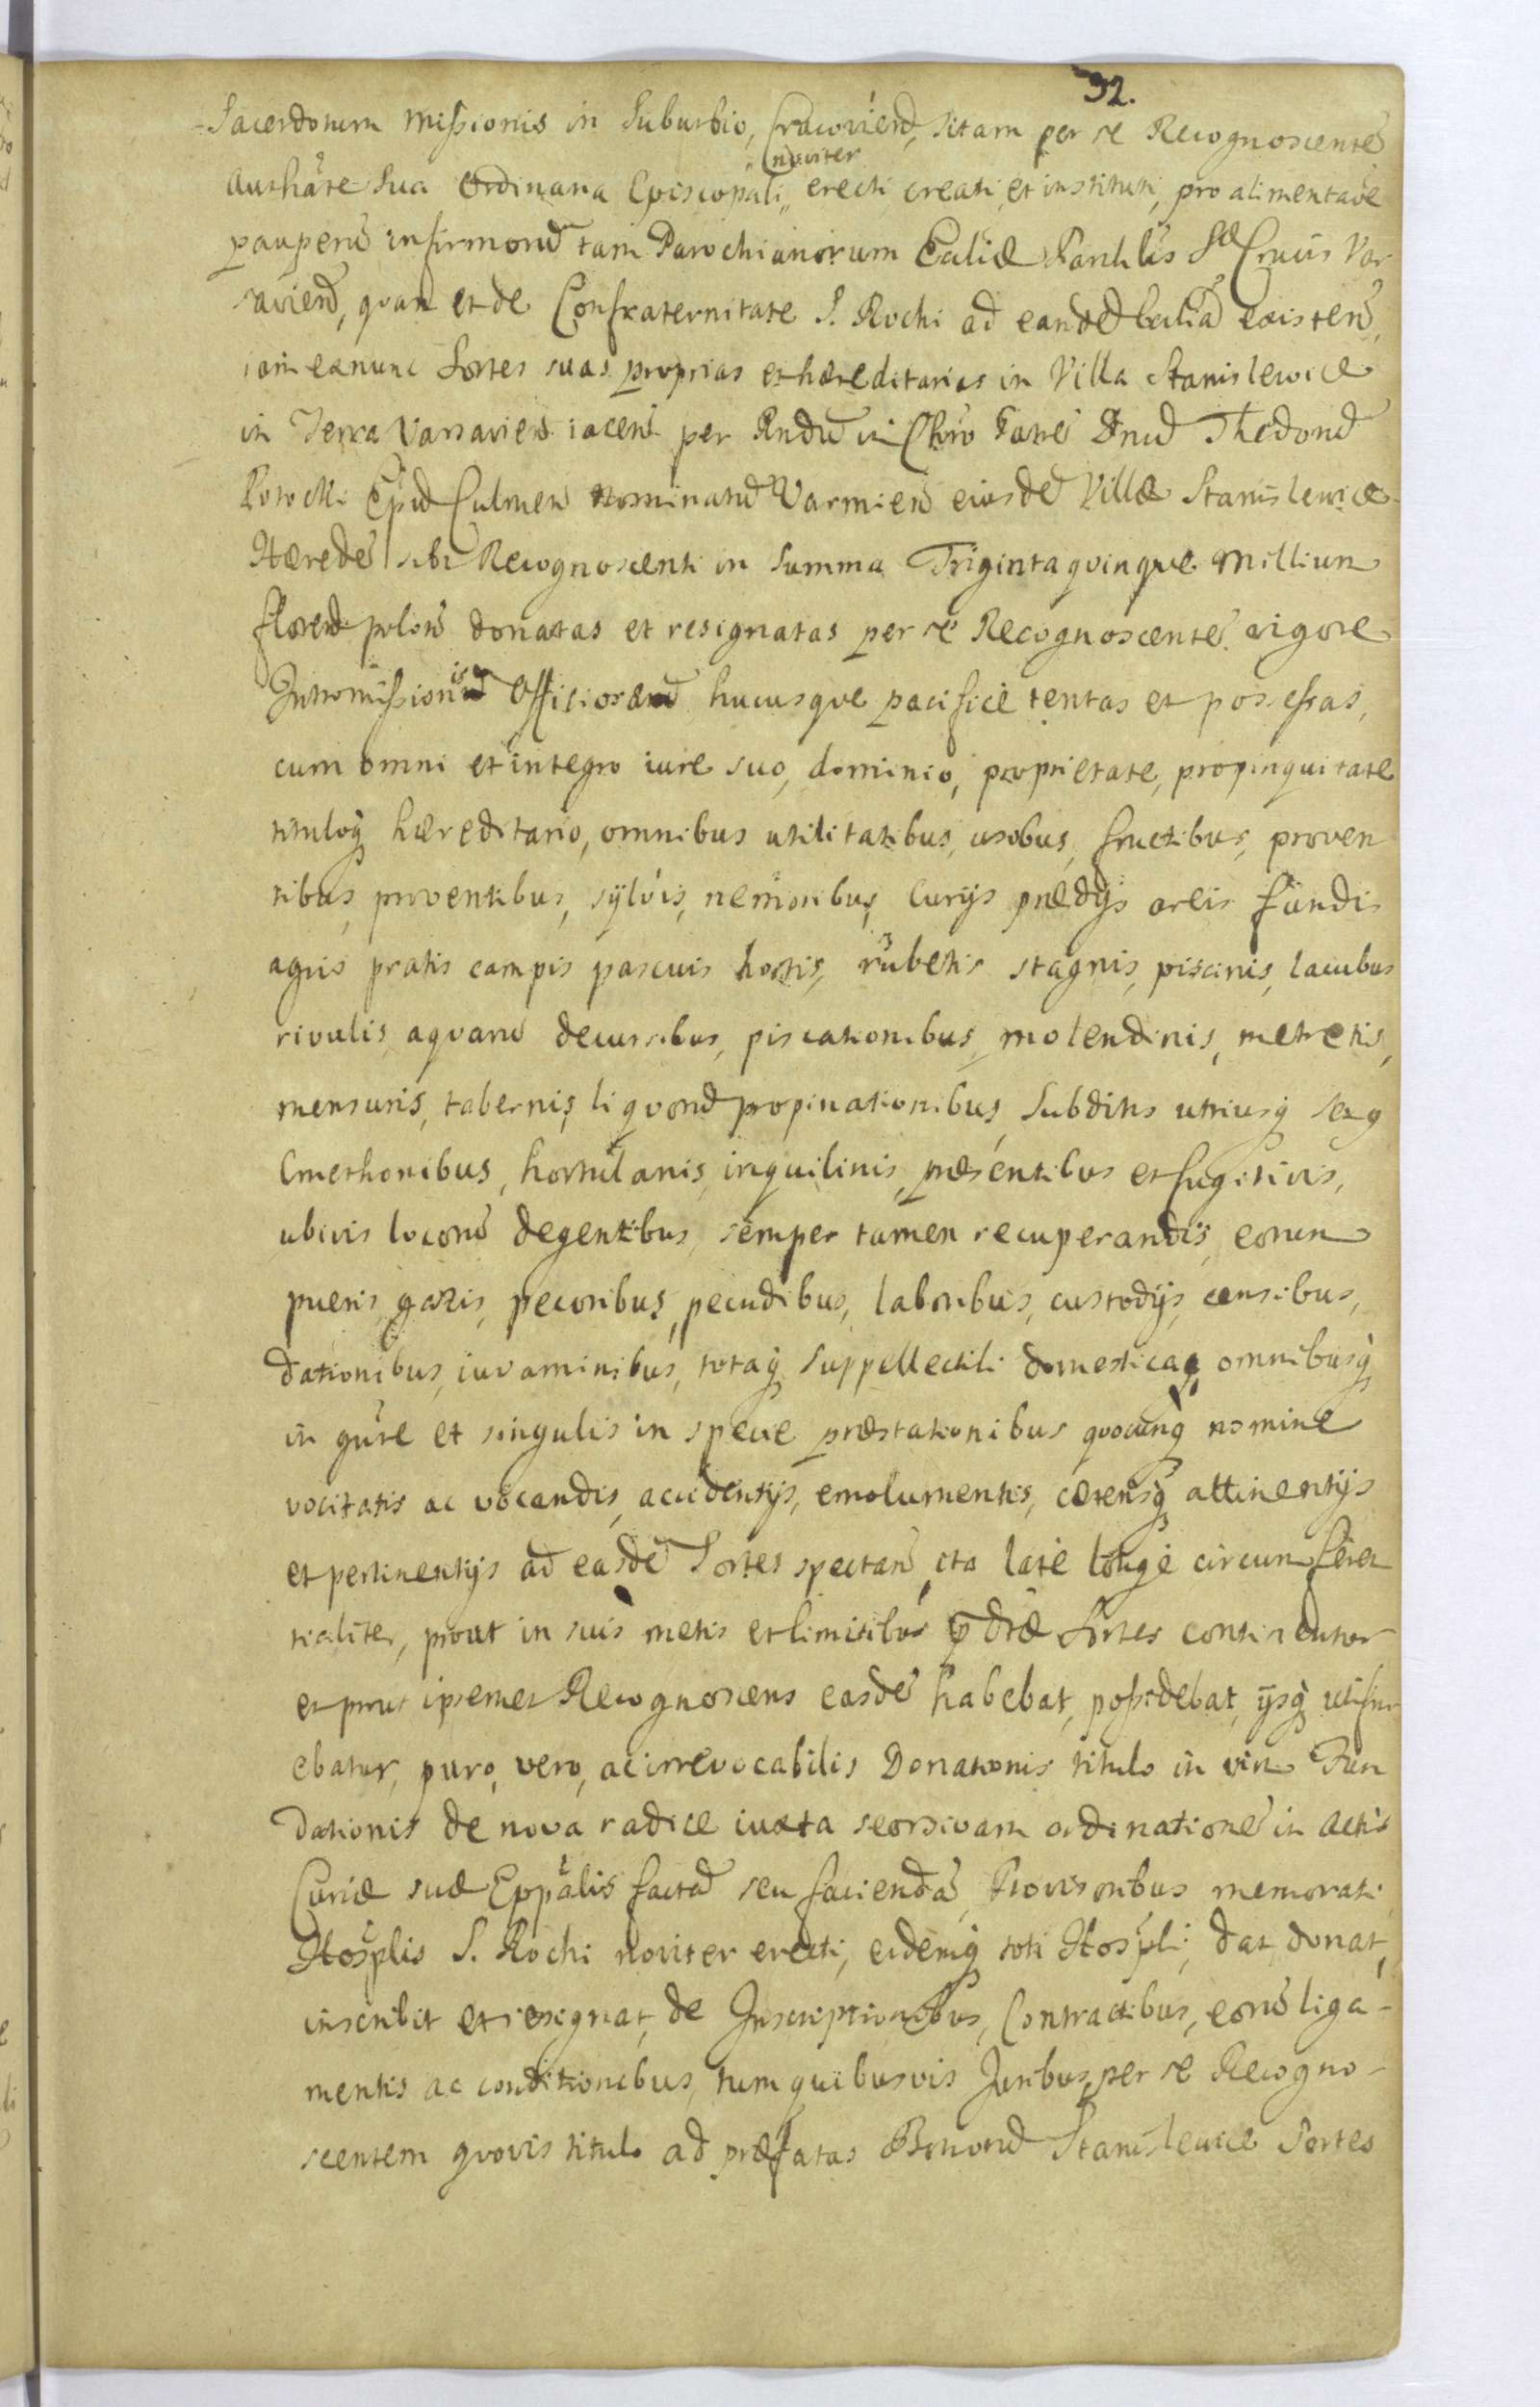 32.
Sacerdotum Missionis in Suburbio, Cracovien̄, sitam per se Recognoscentē
noviter
Authāte sua Ordinaria Episcopali,, erecti creati, et instituti, pro alimentaōe
pauperū infirmorū tam Parochianorum Eccliæ Parchlis Sæ Crucis Var
savien̄, quam et de Confraternitate S. Rochi ad eandē Eccliā existen̄,
iam exnunc Sortes suas proprias et hæreditarias in Villa Stanislewice
in Terra Varsavien̄ iacen̄ per Rndū in Chro Patrē Dnū Thedorū
Potocki Epūm Culmen̄ nominatū Varmien̄ eiusdē Villæ Stanislewice
Hæredē sibi Recognoscenti in Summa Triginta quinque Millium
floren̄ polon̄ donatas et resignatas per sē Recognoscentē vigore
Intromissionis Officiosæ hucusque pacificè tentas et possessas,
cum omni et integro iure suo, dominio, proprietate, propinquitate
tituloq̨ hæreditario, omnibus utilitatibus, usibus, fructibus, proven
tibus, proventibus, sylvis, nemoribus, Curijs prædijs areis fundis
agris pratis campis pascuis hortis, rubetis stagnis, piscinis, lacubus
rivulis, aquarū decursibus, piscationibus, molendinis, metretis,
mensuris, tabernis, liquorū propinationibus, Subditis utriusq̨ sexq
Cmethonibus, hortulanis, inquilinis, præsentibus et fugitivis,
ubivis locorū degentibus, semper tamen recuperandis, eorum
pueris, gazis, pecoribus, pecudibus, laboribus, custodijs, censibus,
dationibus, iuvaminibus, totaq̨ Suppellectili domesticaq̨ omnibusq̨
in gn̄re et singulis in specie præstationibus quocunq̨ nomine
vocitatis ac vocandis, accidentijs, emolumentis, cæterisq̨ attinentijs
et pertinentijs ad easdē Sortes spectan̄, ita latè longè circumferen
tialiter, prout in suis metis et limitibus p̄dtæ Sortes continentur
et prout ipsemet Recognoscens easdē habebat, possidebat, ijsq̨ utifru
ebatur, puro, vero, ac irrevocabilis Donationis titulo in vim Fun
dationis de nova radice iuxta seorsivam ordinationē in Actis
Curiæ suæ Eppālis factā seu faciendā, Provisoribus memorati
Hosplis S. Rochi noviter erecti, eidemq̨ toti Hospli, dat, donat,
inscribit et resignat, de Inscriptionibus, Contractibus, eorū liga-
mentis ac conditionibus, tum quibusvis Juribus, per se Recogno-
scentem quovis titulo ad præfatas Bonorū Stanislewice Sortes